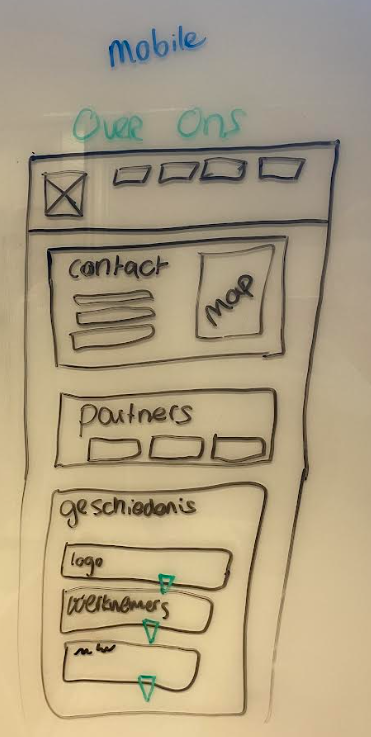 mobile
Over Ons
contact
map
partners
geschiedenis
logo
werknemers